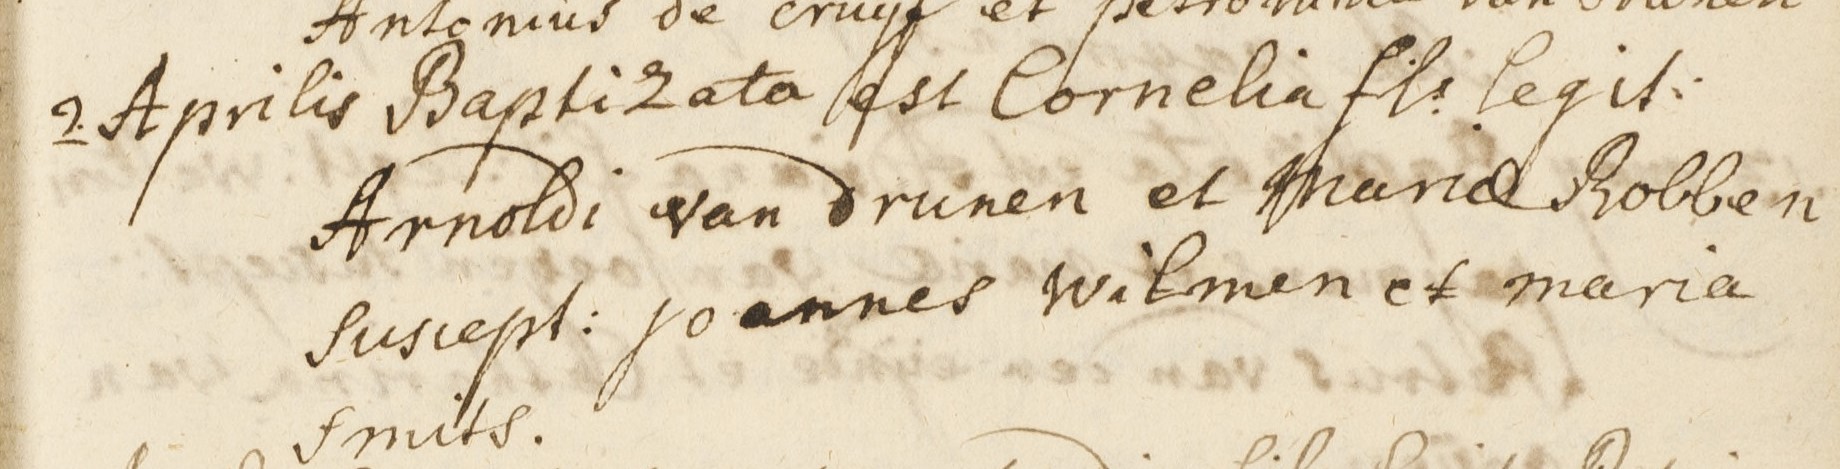 Antonius de cruyf et petronilla van drunen
2. Aprilis Baptizata est Cornelia fls. legit:
Arnoldi van drunen et Mariæ Robben
suscept: joannes wilmen et maria
smits.